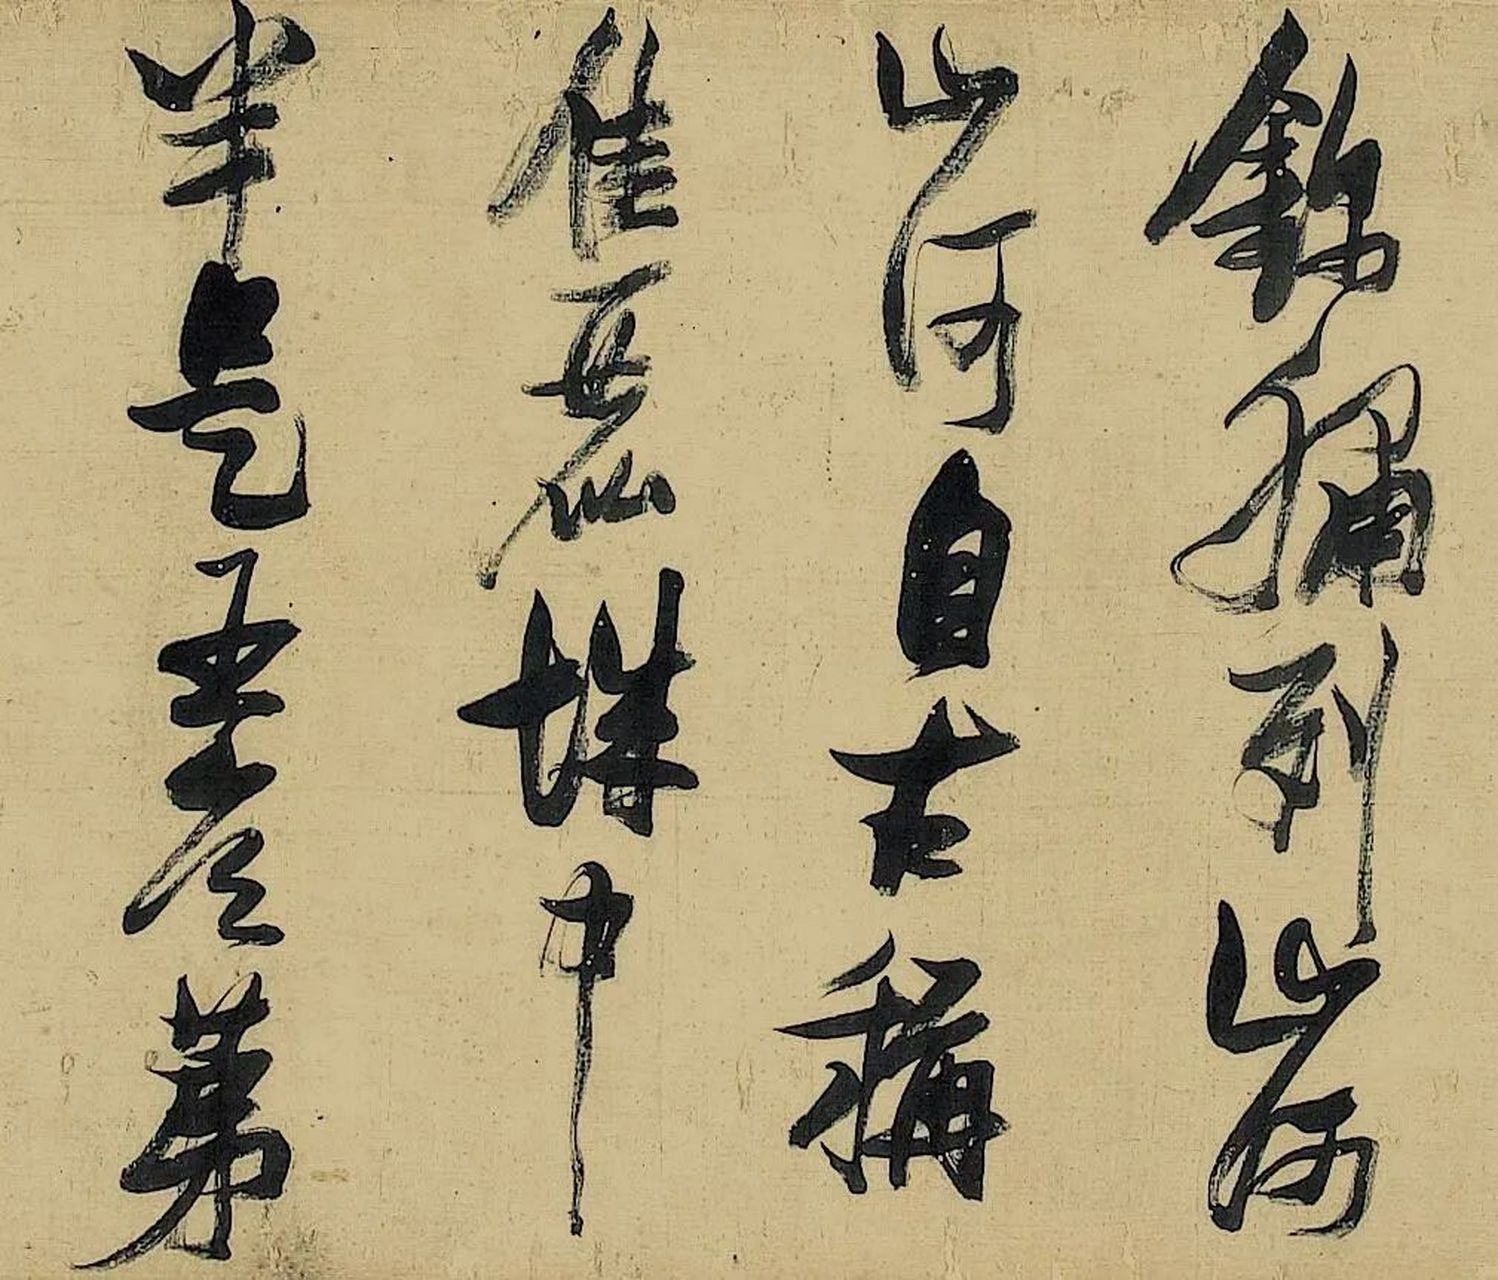 錦繡列山河
山河自古稱
佳麗城中
半是第